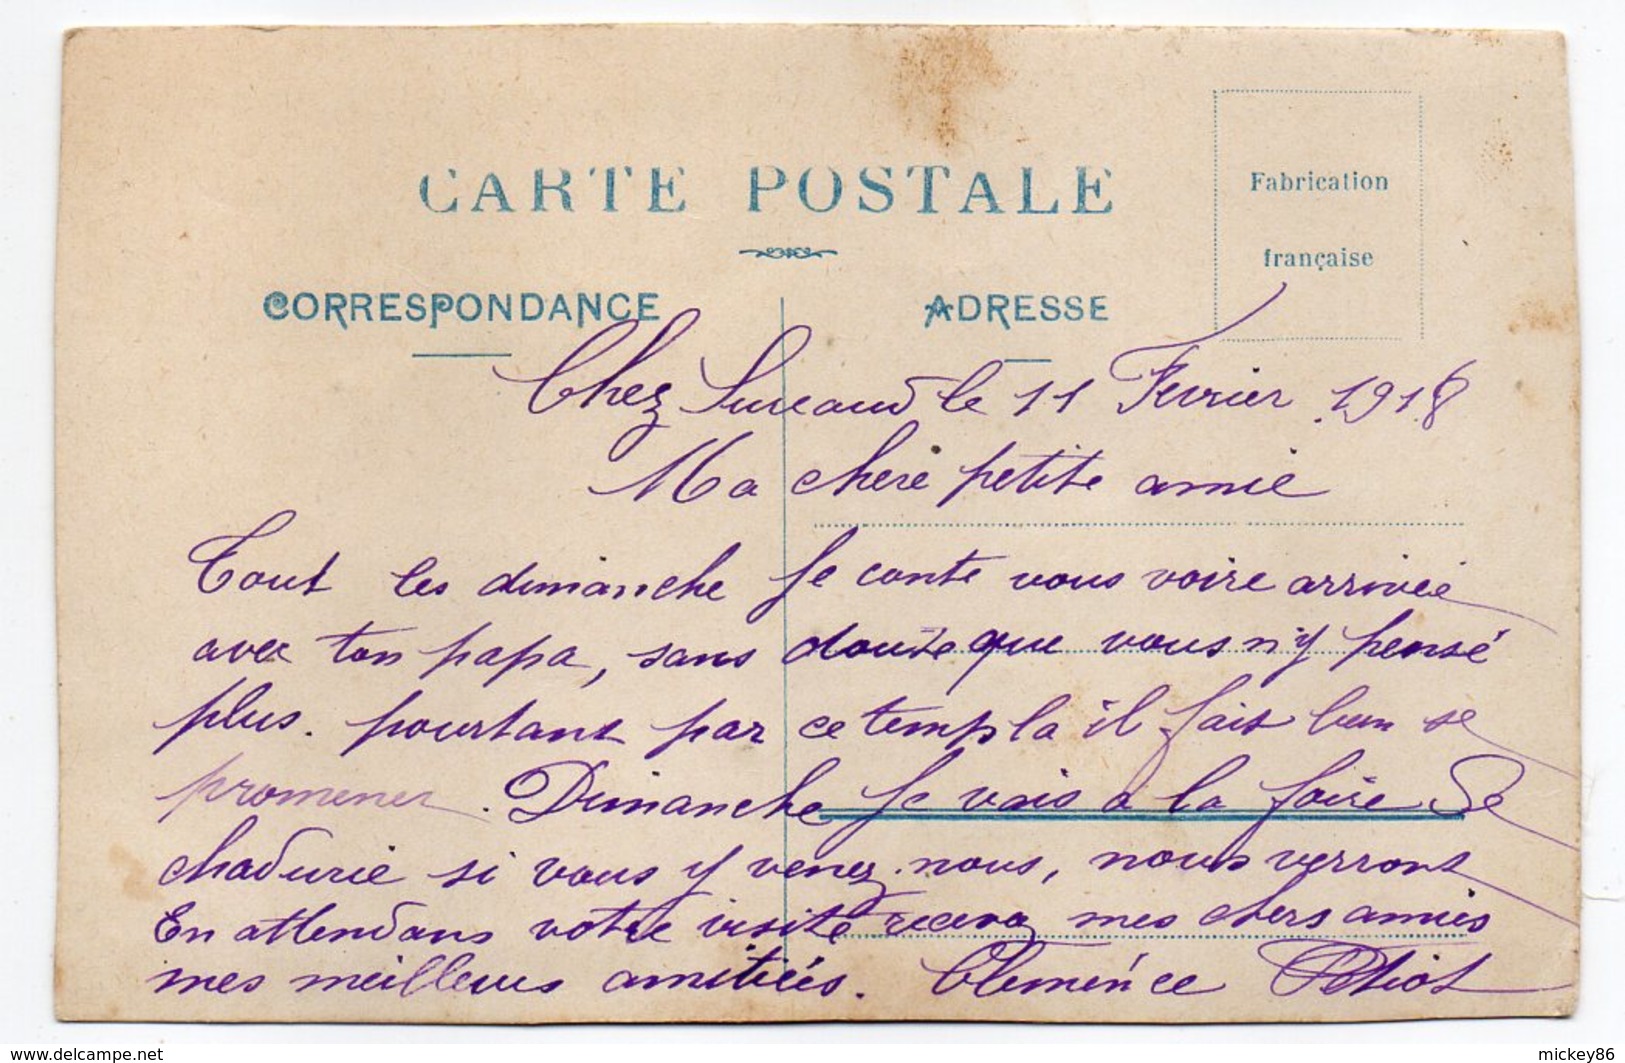 CARTE POSTALE
Fabrication
française
CORRESPONDANCE
ADRESSE
Chez Sureaud le 11 Fevrier 1918
Ma chère petite amie
Tout les dimanche Je conte vous voire arrivée
avec ton papa, sans doute que vous n'y pensé
plus. pourtant par ce temp la il fait bon se
promener. Dimanche Je vais a la foire De
chadurie si vous y venez nous, nous verront
En attendans votre visite recevez mes chers amies
mes meilleurs amitiées. Clemence Petiot
www.delcampe.net
mickey86